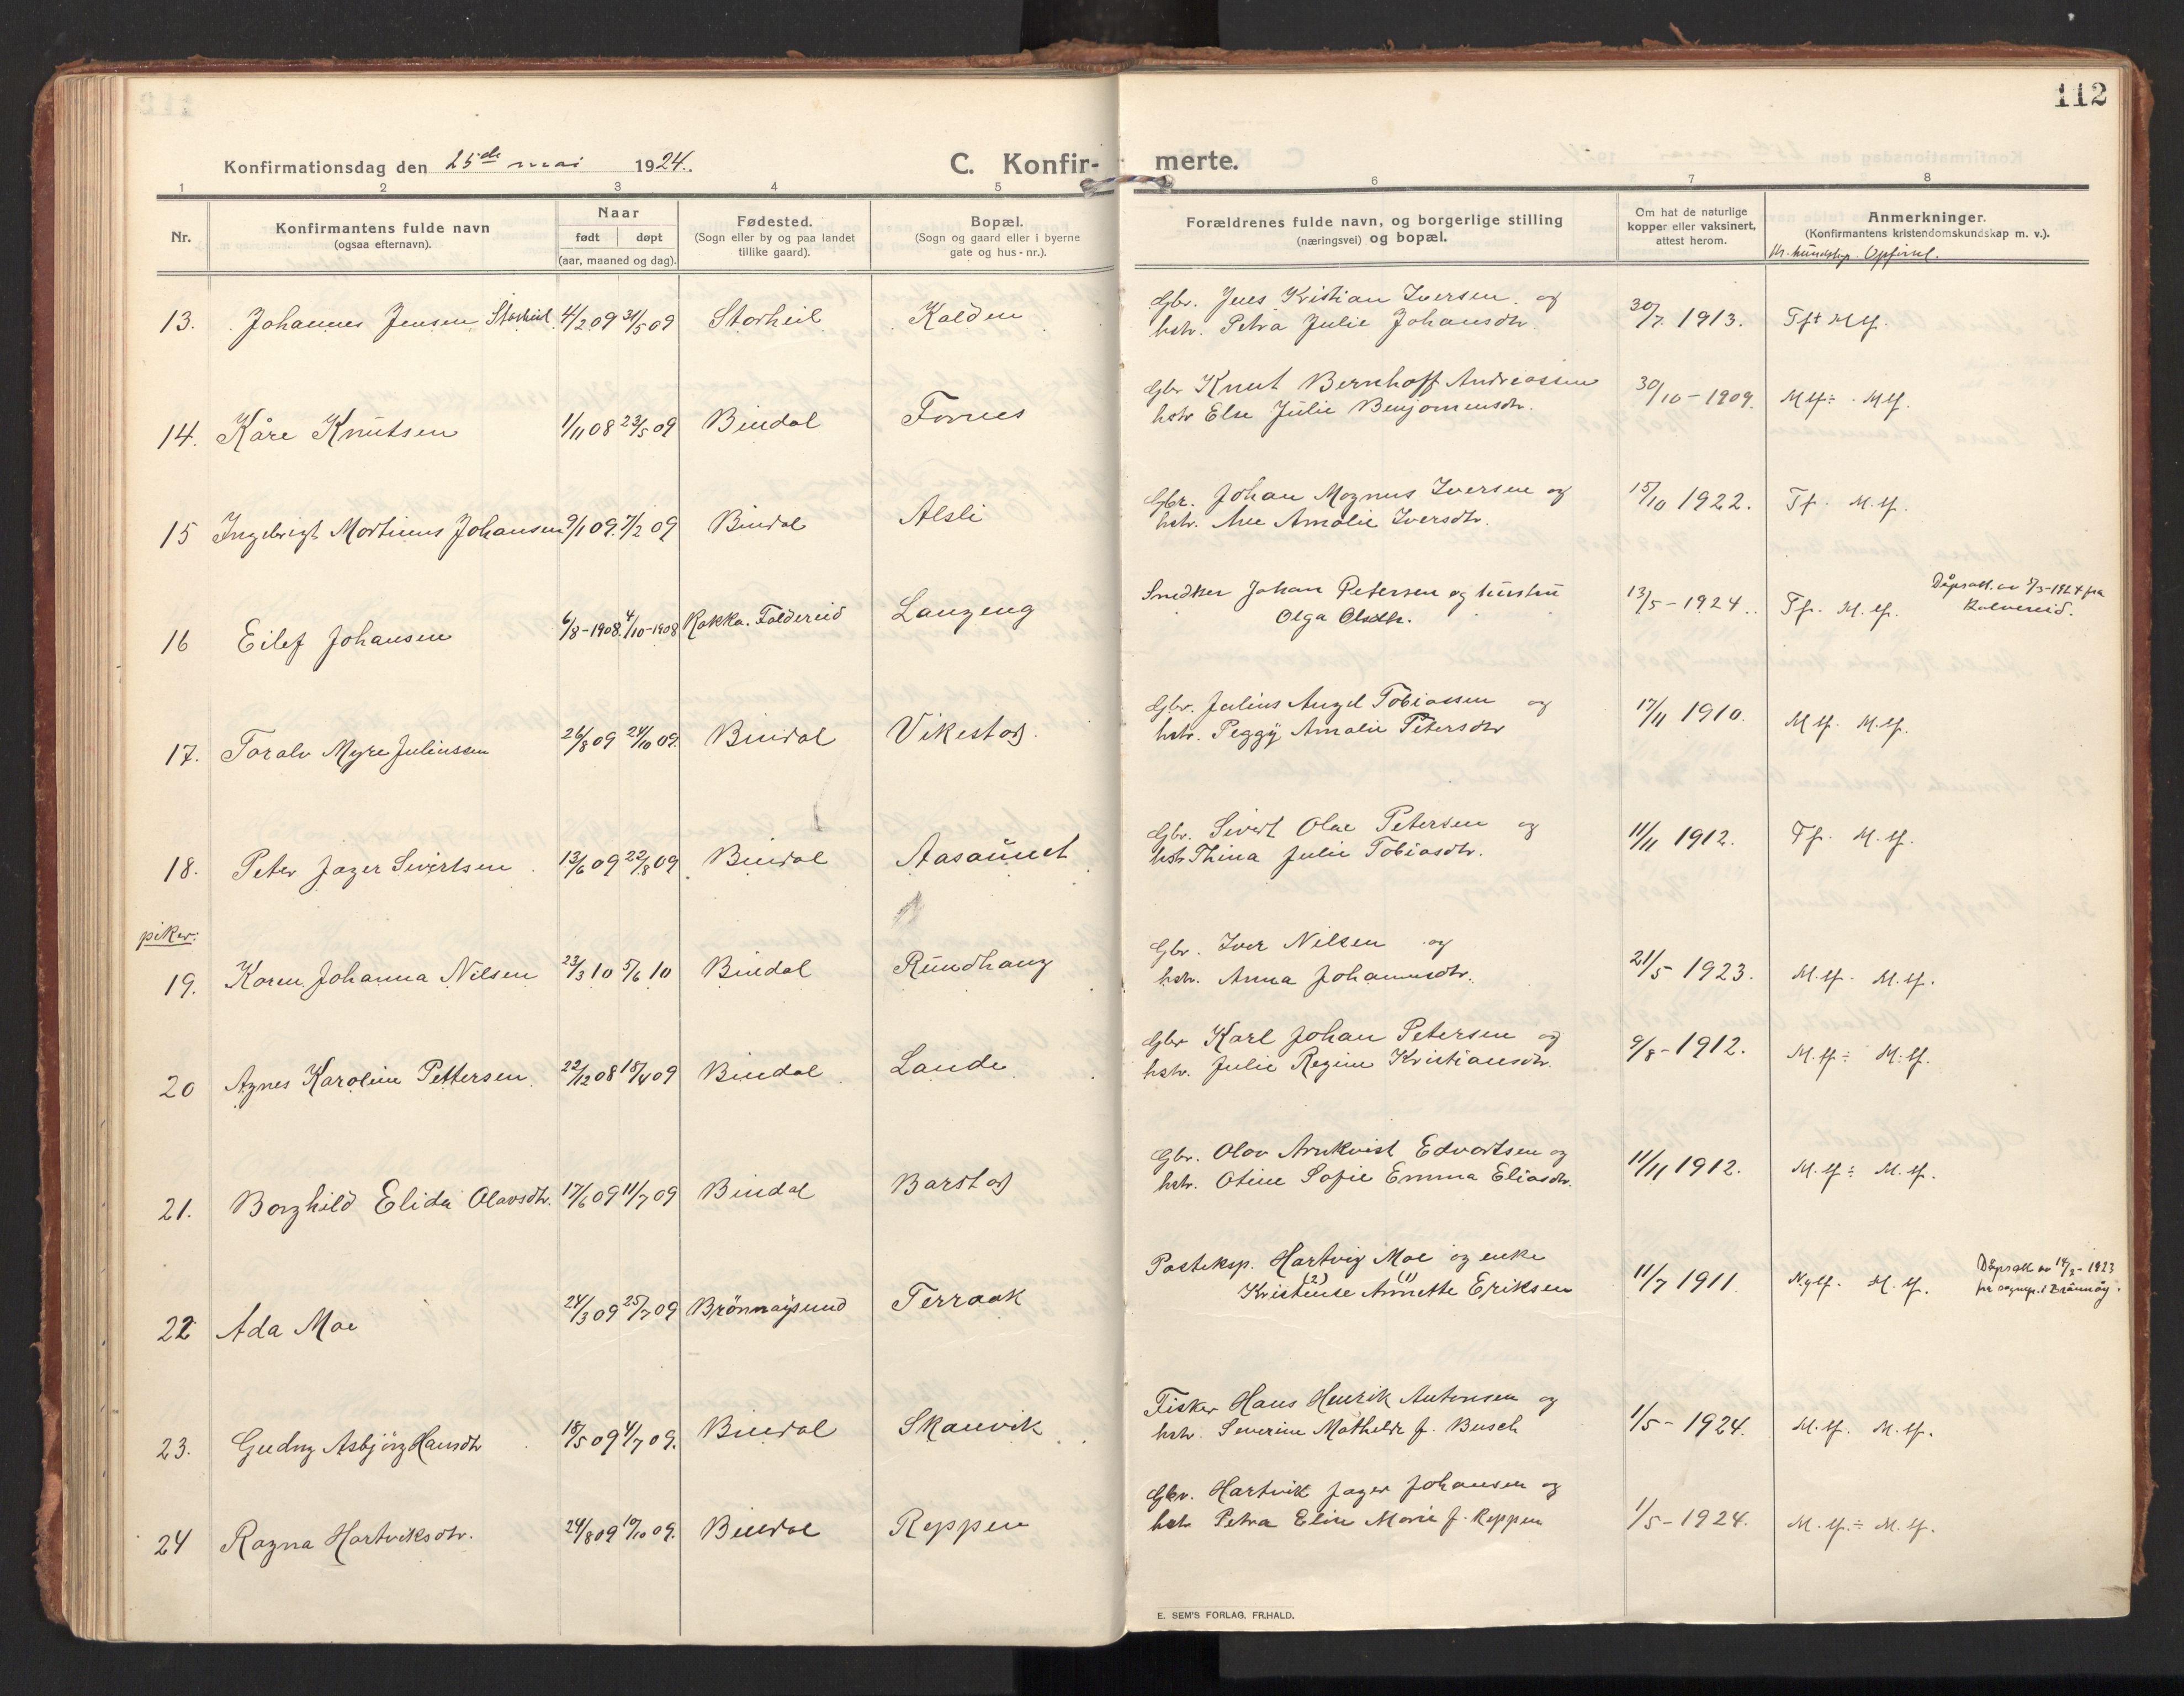 112
Konfirmationsdag den 25de mai 1924.
C. Konfir- merte.
1 2 3 4 5 6 7 8
Nr.
Konfirmantens fulde navn
(ogsaa efternavn).
Naar
født døpt
(aar, maaned og dag).
Fødested.
(Sogn eller by og paa landet
tillike gaard).
Bopæl.
(Sogn og gaard eller i byerne
gate og hus-nr.).
Forældrenes fulde navn, og borgerlige stilling
(næringsvei) og bopæl.
Om hat de naturlige
kopper eller vaksinert,
attest herom.
Anmerkninger.
(Konfirmantens kristendomskundskap m. v.).
Kr. kundskap. Opførsel.
Gbr. Jens Kristian Iversen og
13. Johannes Jensen Storheil 4/2 09 31/5 09 Storheil Kalden hstr. Petra Julie Johansdtr. 30/7 1913. Tf+ Mf.
Gbr Knut Bernhoff Andreassen
14. Kåre Knutsen 1/11 08 23/5 09 Bindal Fornes hstr Else Julie Benjamensdtr. 30/10-1909. Mf÷. Mf.
Gbr. Johan Magnus Iversen og
15 Ingebrigt Martinus Johansen 9/1 09. 7/2 09 Bindal Alsli hstr. Ane Amalie Iversdtr. 15/10 1922. Tf. M.f.
Snedker Johan Petersen og hustru
16 Eilef Johansen 6/8-1908. 4/10-1908 Kokka. Foldereid Langeng Olga Olsdtr. 13/5-1924. Tf. M.f. Dåpsatt. av 7/3-1924 fra
Kolvereid.
Gbr. Julius Angel Tobiassen og
17. Toralv Myre Juliussen 26/8 09 24/10 09. Bindal Vikestad. hstr. Peggy Amalie Petersdtr 17/11 1910. Mf. M.f.
Gbr. Sivert Olae Petersen og
18. Peter Jager Sivertsen 13/6 09 22/8 09 Bindal Aasaunet hstr Thina Julie Tobiasdtr. 11/11 1912. Tf. M.f.
piker:
Gbr. Iver Nilsen og
19. Karen Johanna Nilsen 23/3 10 5/6 10 Bindal Rundhaug hstr. Anna Johannesdtr. 21/5 1923. M.f. M.f.
Gbr Karl Johan Petersen og
20 Agnes Karoline Pettersen 22/12 08 18/4 09 Bindal Lande hstr. Julie Regine Kristiansdtr. 9/8-1912. M.f÷ M.f.
Gbr. Olav Arnkvist Edvartsen og
21. Borghild Elida Olavsdtr. 17/6 09 11/7 09 Bindal Barstad hstr. Otine Sofie Emma Eliasdtr. 11/11 1912. M.f÷ M.f.
Posteksp. Hartvig Moe og enke
22 Ada Moe 24/3 09 25/7 09 Brönnøysund Terraak Kristense (2) Annette (1) Eriksen 11/7 1911 N.gf. M.f. Dåpsatt av 14/2-1923
fra sognep. i Brönnöy.
Fisker Hans Henrik Antonsen og
23. Gudny Asbjörg Hansdtr 18/5 09 4/7 09. Bindal Skauvik hstr. Severine Mathilde f. Busch 1/5-1924. M.f. M.f.
Gbr. Hartvik Jager Johansen og
24 Ragna Hartviksdtr. 24/8 09 10/10 09. Bindal Reppen hstr Petra Eline Marie f. Reppen 1/5-1924. M.f.÷ M.f.
E. SEM'S FORLAG, FR.HALD.